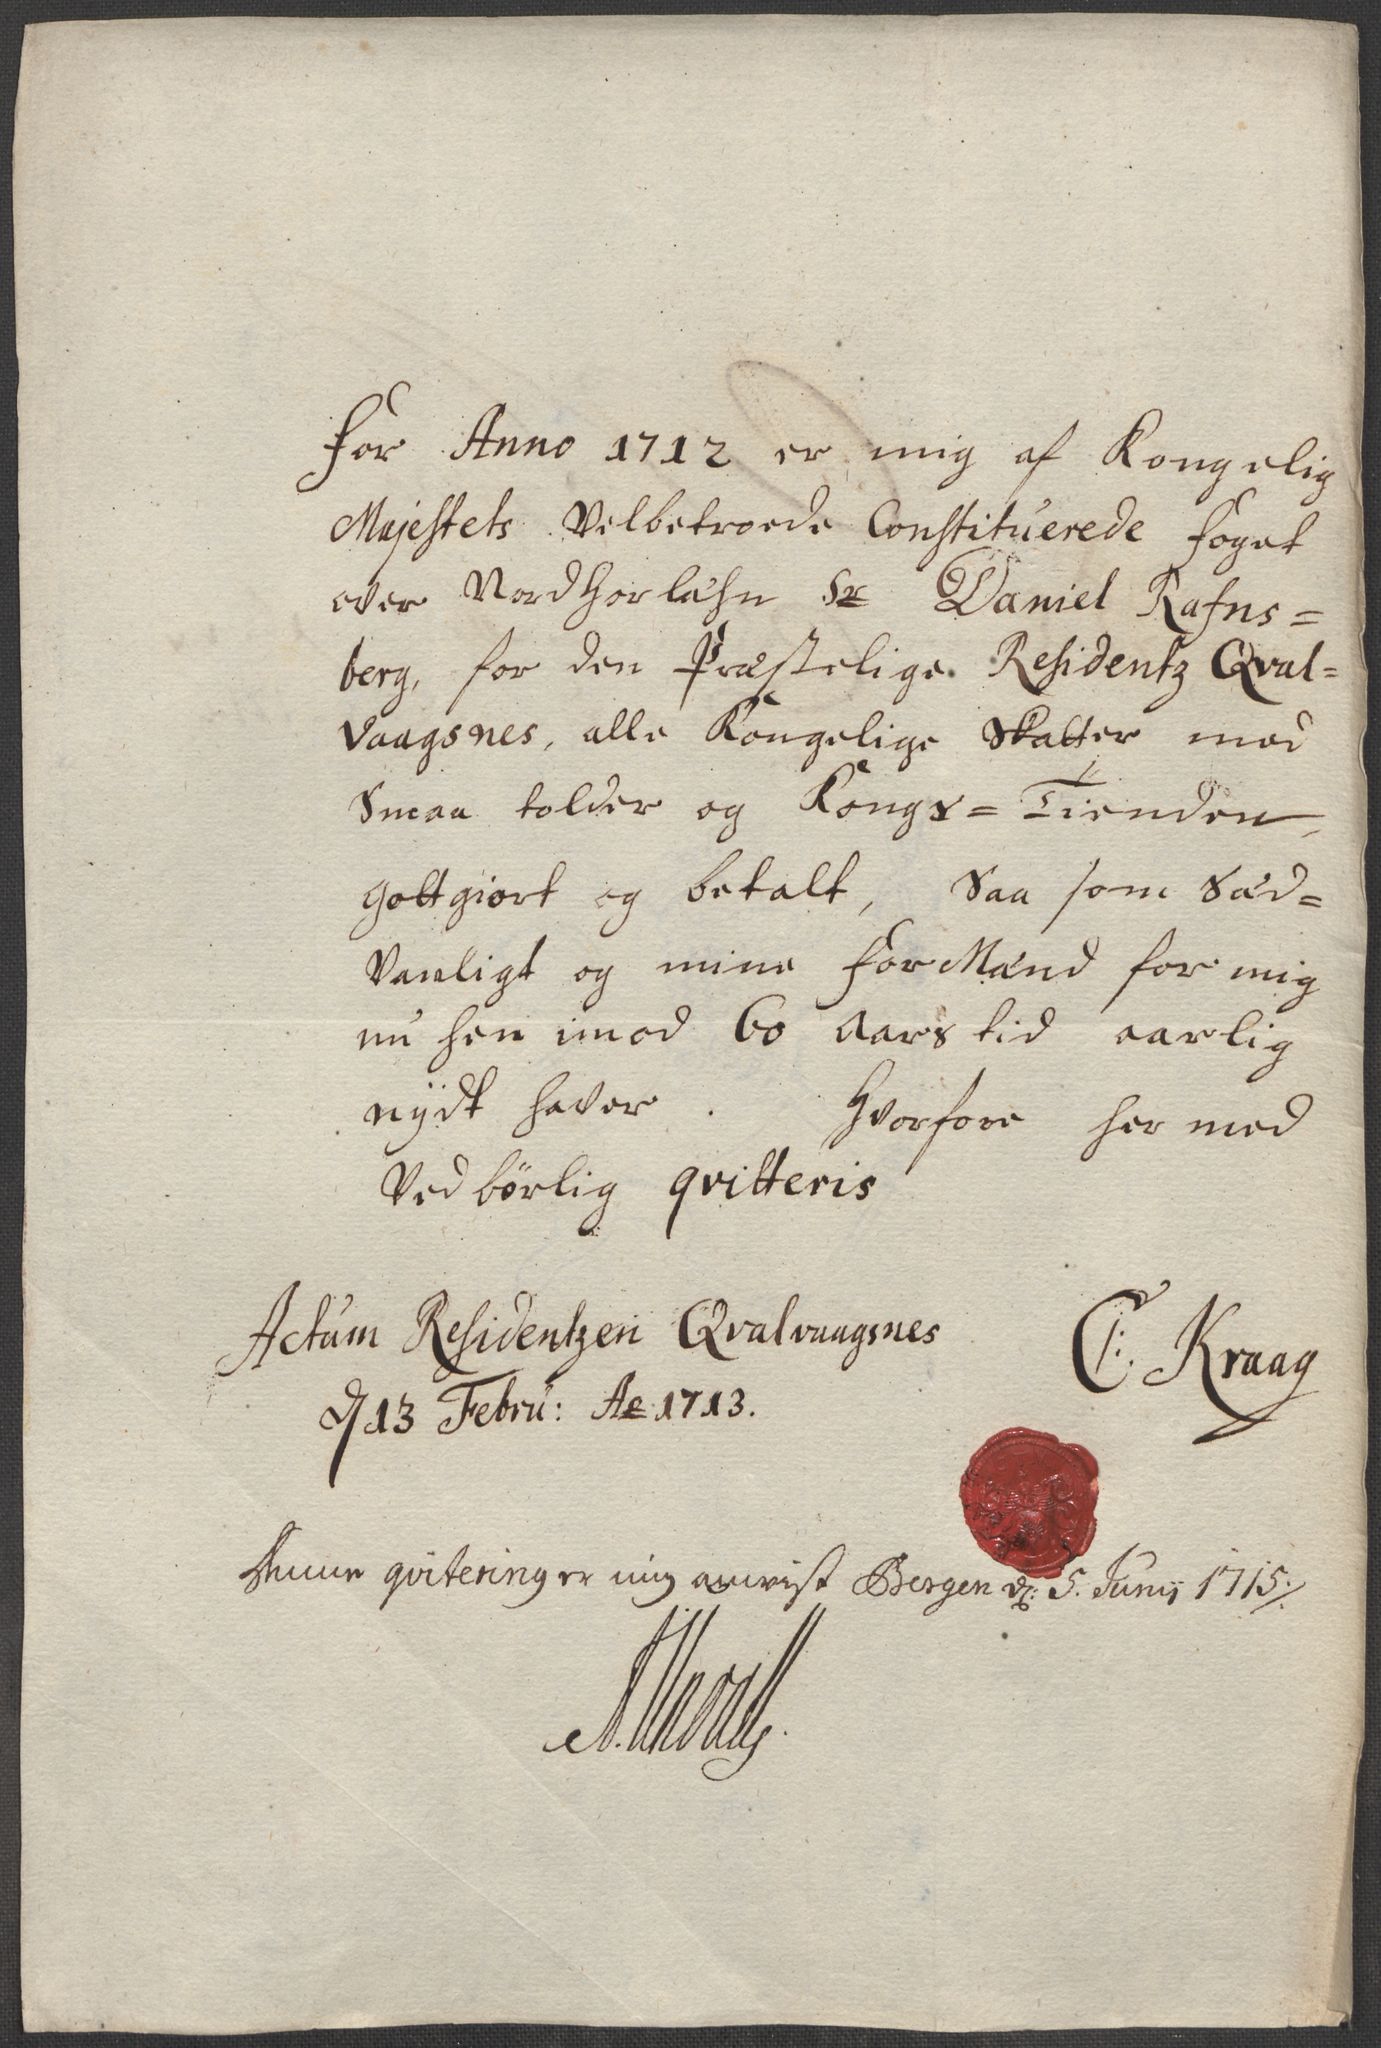 For Anno 1712 er mig af Kongelig
Majestets Velbetroede Constituerede foget
over Nordhorlehn Sr Daniel Rafns=
berg, for den Præstelige Residentz Qval=
vaagsnes, alle Kongelige Skatter med
Smaa tolder og Kongs=Tienden,
gottgiort og betalt, Saa som Sæd=
vanligt og mine forMænd for mig
nu hen imod 60 Aars tid aarlig
nÿdt haver. Hvorfore her med
Vedbörlig qvitteris
Actum Residentzen Qvalvaagsnes
d 13 Febru: Ao 1713.
C: Kraag
Denne qvitering er mig anvist Bergen d: 5. Junij 1715